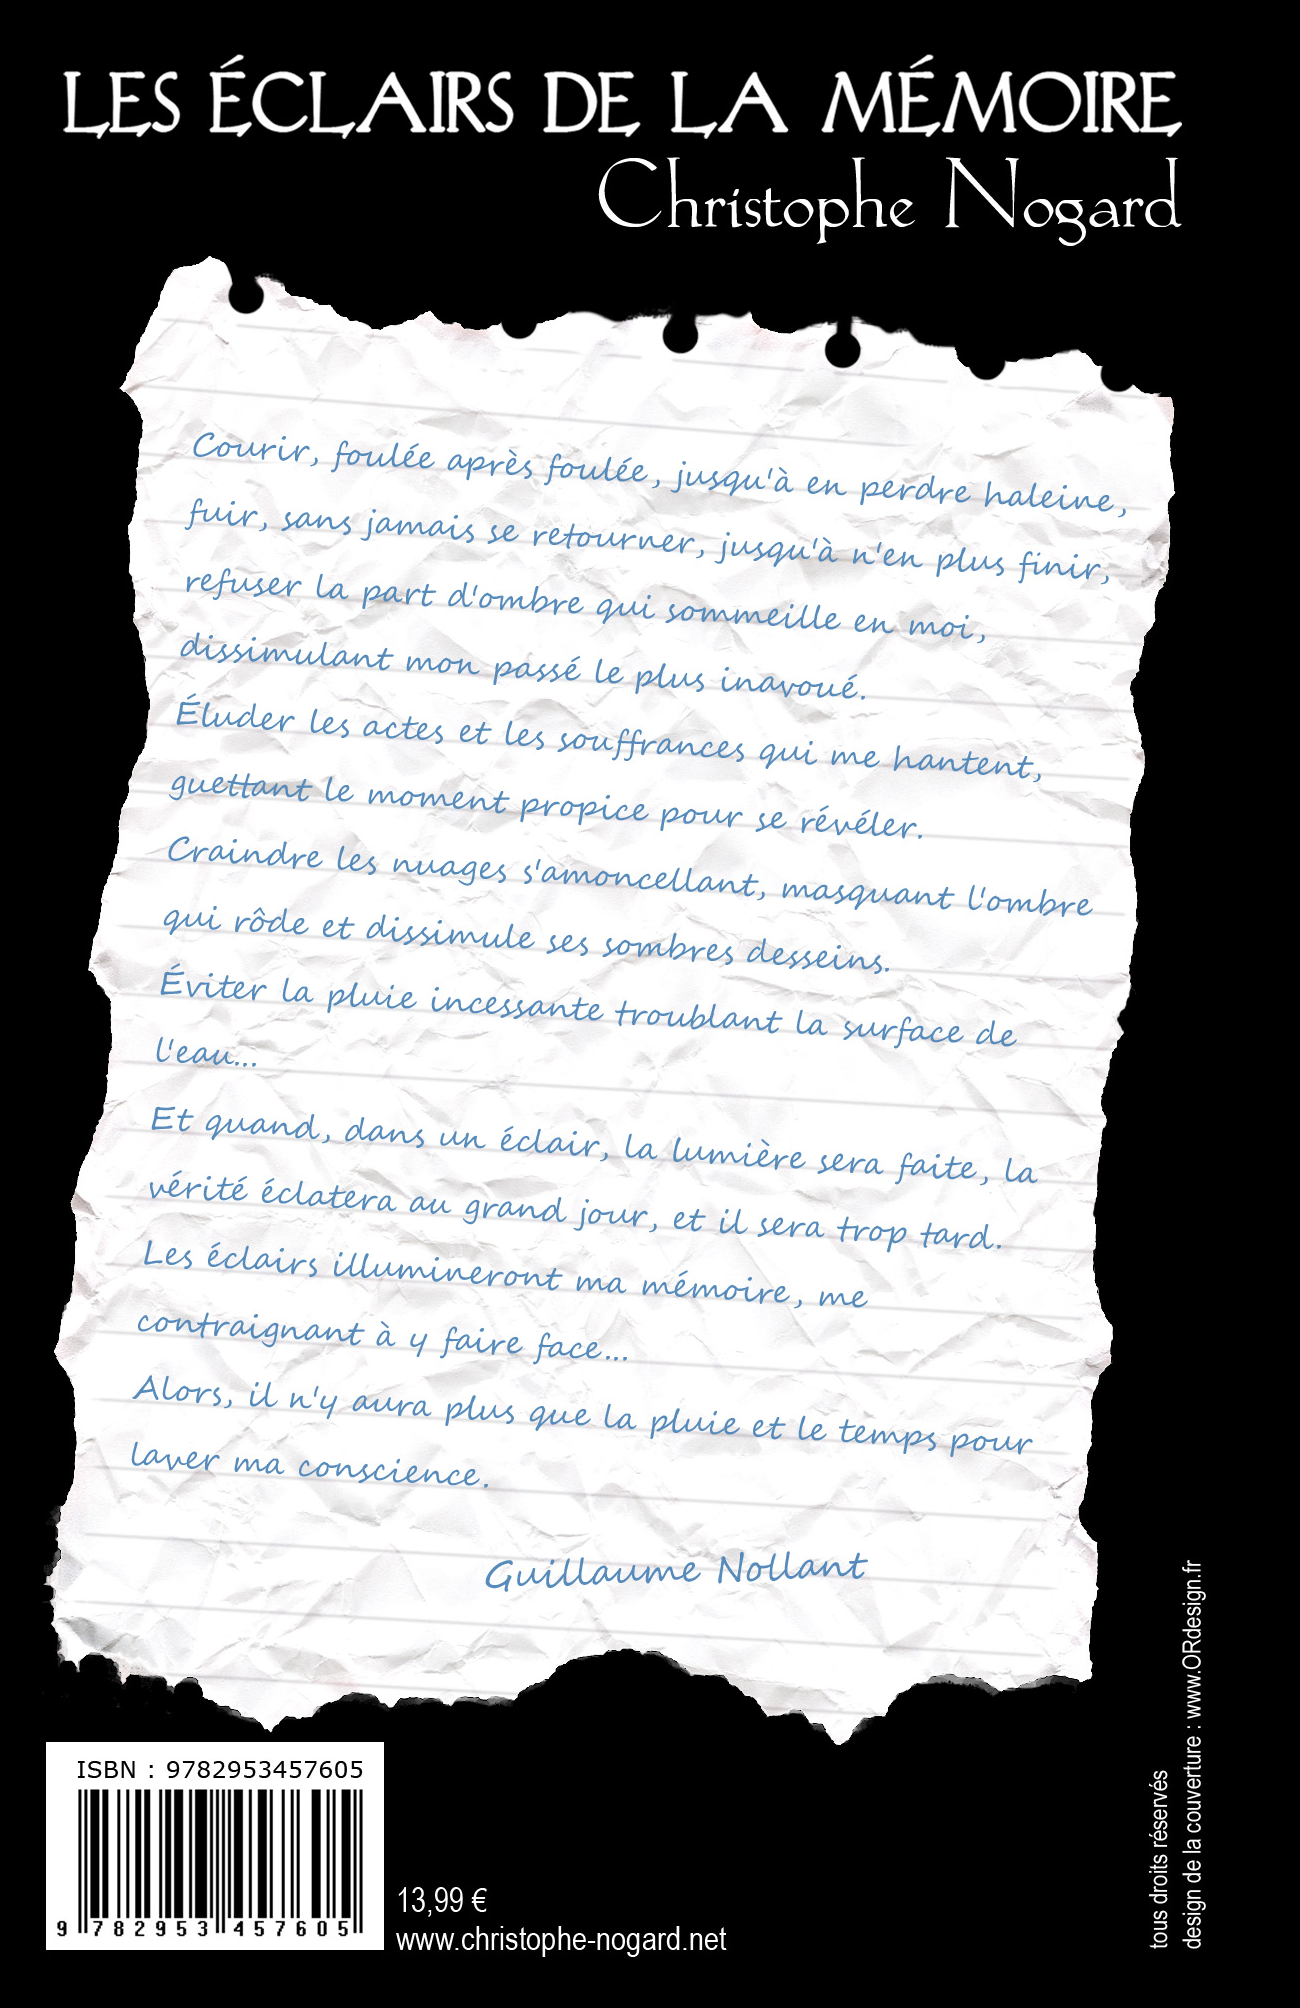 LES ÉCLAIRS DE LA MÉMOIRE
Christophe Nogard
Courir, foulée après foulée, jusqu'à en perdre haleine,
fuir, sans jamais se retourner, jusqu'à n'en plus finir,
refuser la part d'ombre qui sommeille en moi,
dissimulant mon passé le plus inavoué.
Éluder les actes et les souffrances qui me hantent,
guettant le moment propice pour se révéler.
Craindre les nuages s'amoncellant, masquant l'ombre
qui rôde et dissimule ses sombres desseins.
Éviter la pluie incessante troublant la surface de
l'eau...
Et quand, dans un éclair, la lumière sera faite, la
vérité éclatera au grand jour, et il sera trop tard.
Les éclairs illumineront ma mémoire, me
contraignant à y faire face...
Alors, il n'y aura plus que la pluie et le temps pour
laver ma conscience.
Guillaume Nollant
ISBN : 9782953457605
9 782953 457605
13,99 €
www.christophe-nogard.net
tous droits réservés
design de la couverture : www.ORdesign.fr